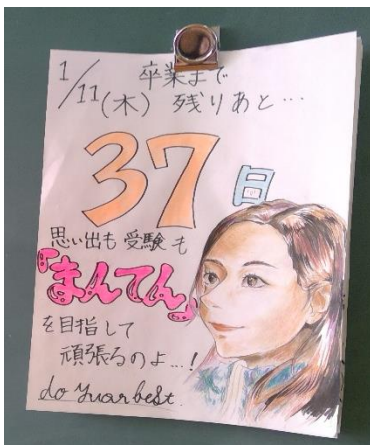 1/11(木) 卒業まで
残りあと…
37日
思い出も受験も
『まんてん』
を目指して
頑張るのよ…!
do yuar best.